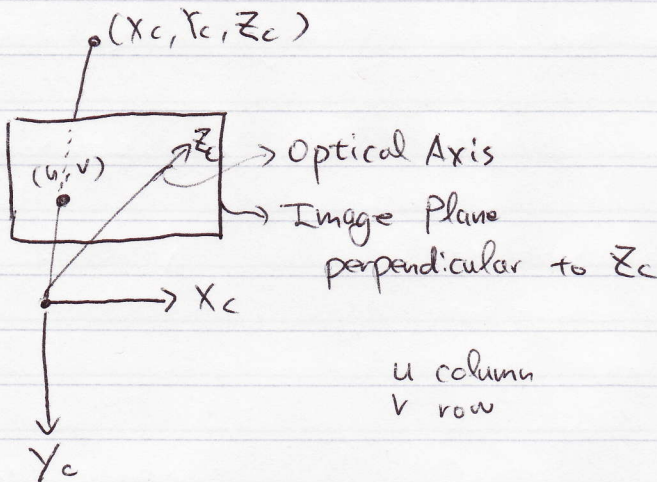 (Xc, Yc, Zc)
Zc
Optical Axis
(u, v)
Image Plane
perpendicular to Zc
Xc
u column
v row
Yc